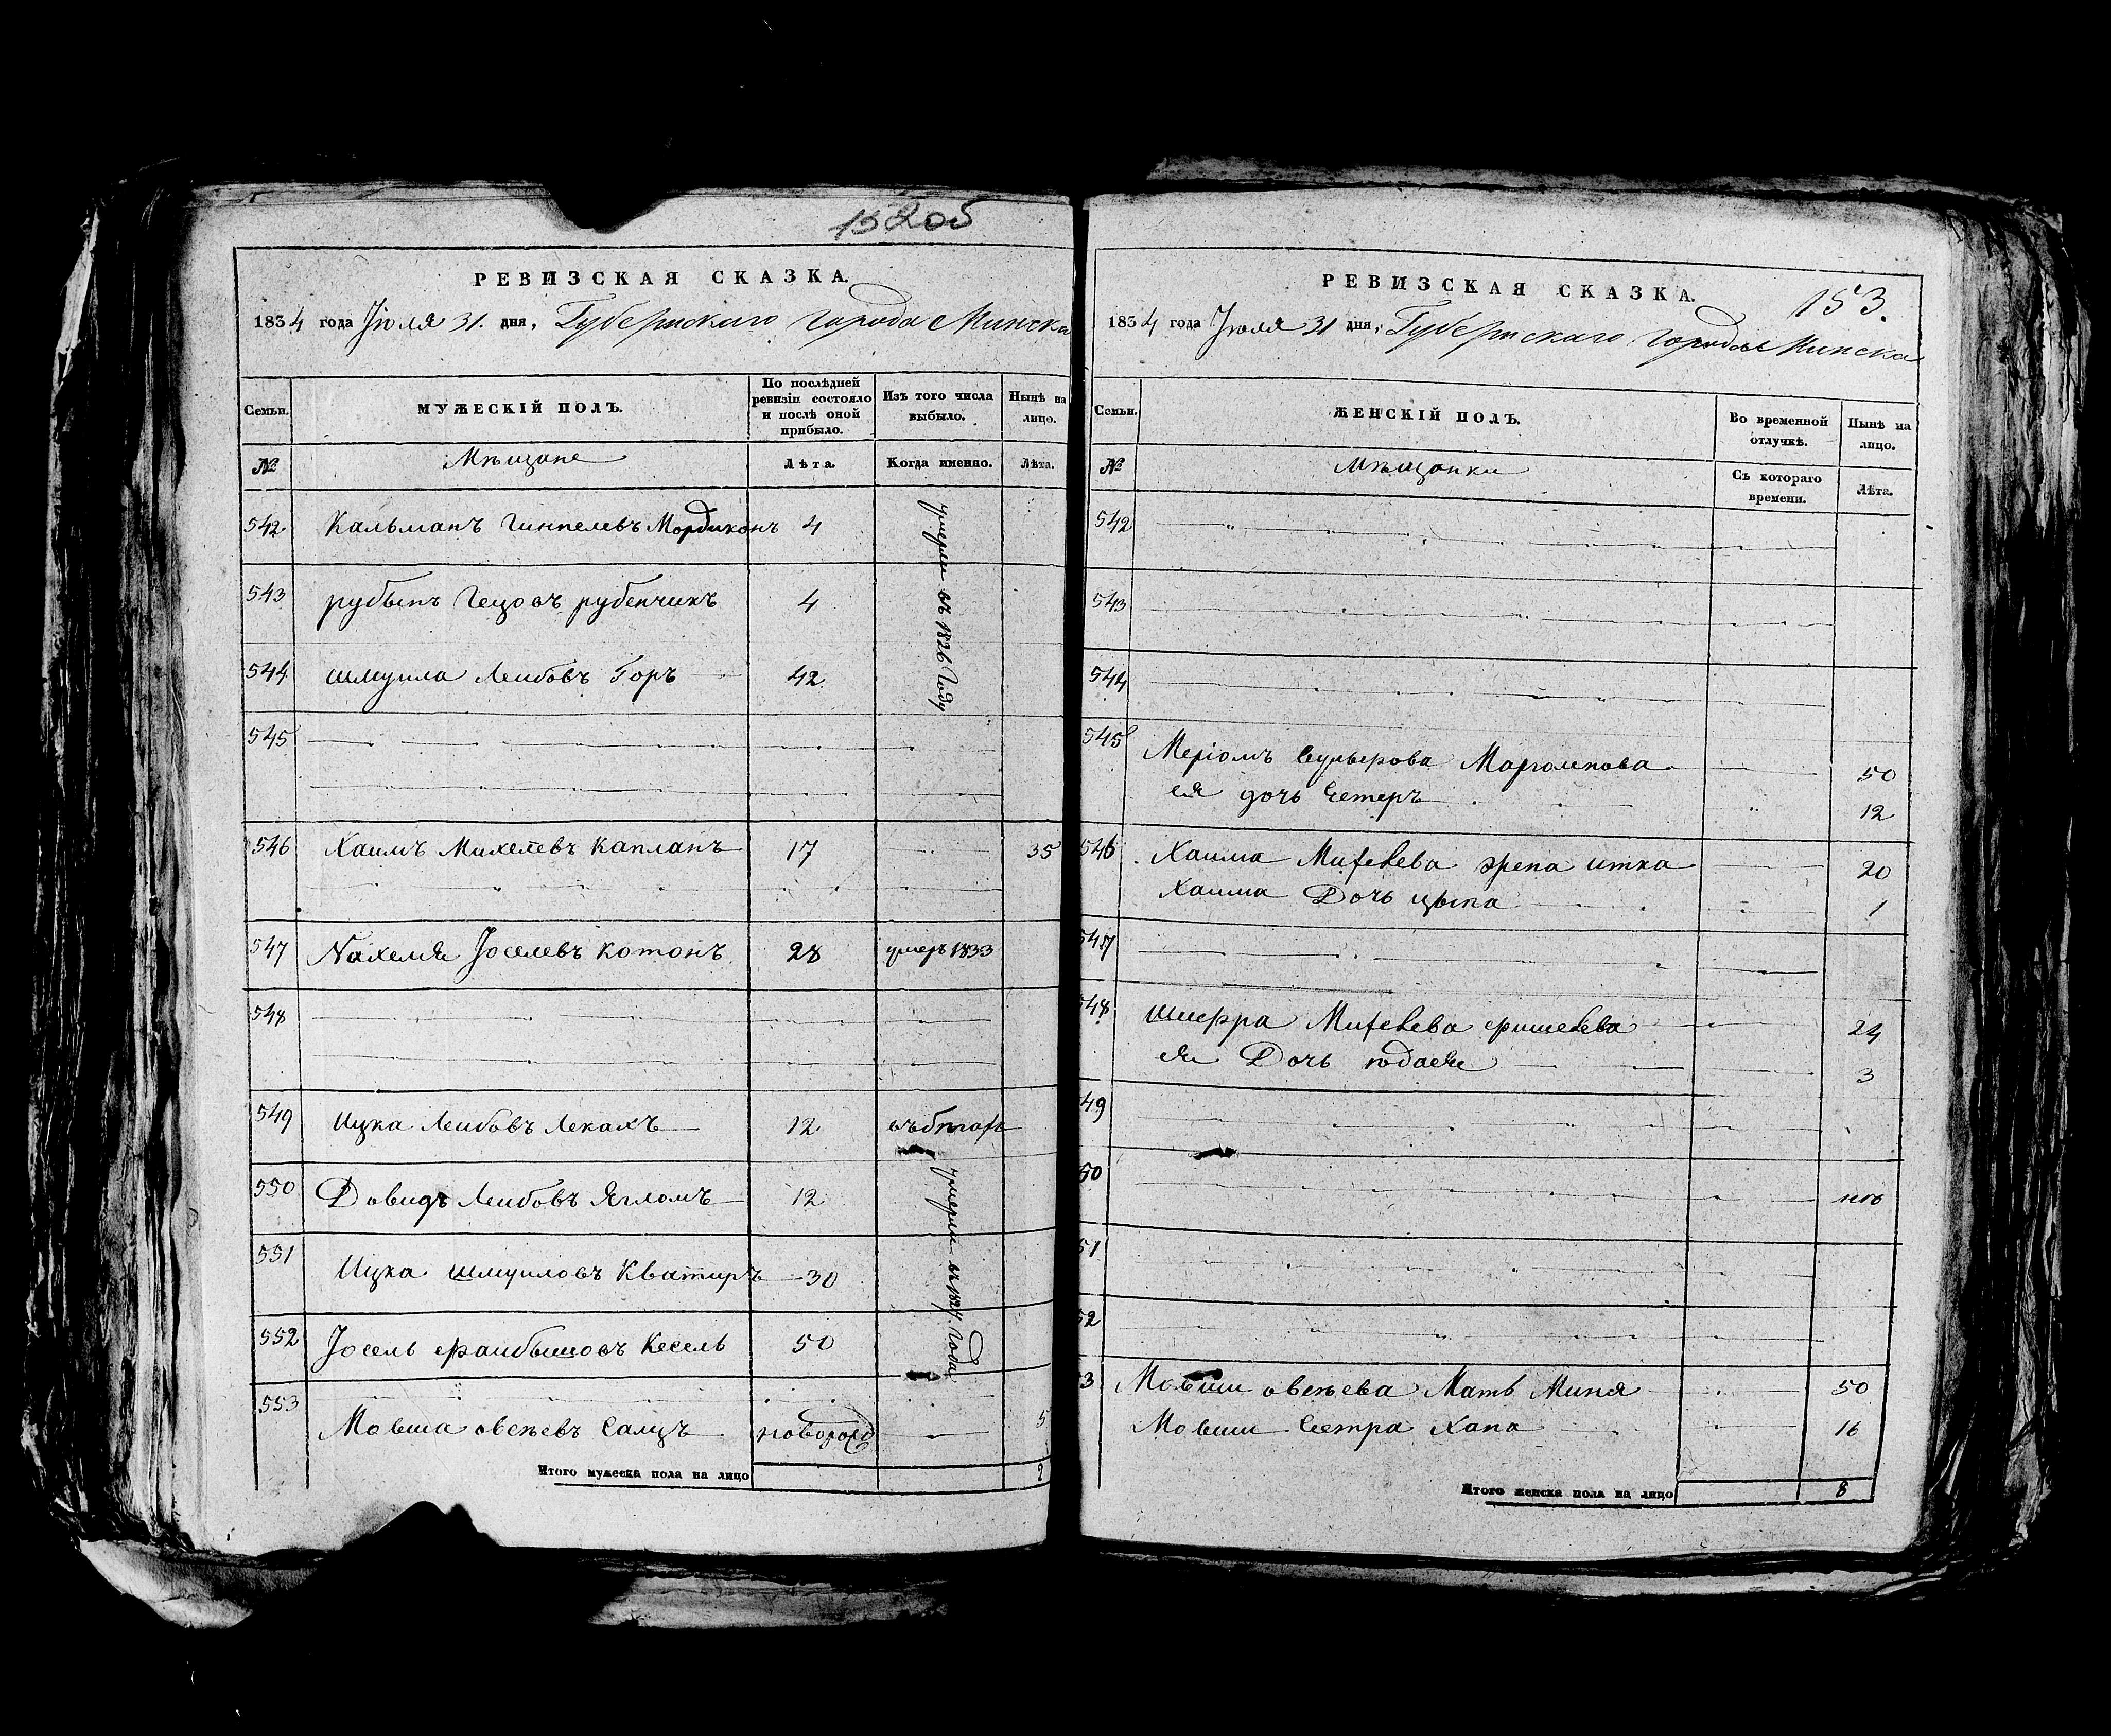 152об
РЕВИЗСКАЯ СКАЗКА.
1834 года Іюля 31. дня, Губернскаго города Минска
Семьи.
МУЖЕСКІЙ ПОЛЪ.
По послѣдней ревизіи состояло и послѣ оной прибыло.
Изъ того числа выбыло.
Нынѣ на лицо.
№
Мѣщане
Лѣта.
Когда именно.
Лѣта.
542 Кальманъ Гимпелевъ Мордиконъ 4
умерли въ 1826 Году
543 рубынъ Гецовъ рубенчикъ 4
544 шмуила Леибовъ Горъ 42
545
546 Хаимъ Михелевъ Капланъ 17 35
547 Нахемя Іоселевъ котонъ 28 умеръ 1833
548
549 Ицка Леибовъ Лекахъ 12 въ бѣгахъ
550 Довидъ Леибовъ Ягломъ 12
умерли въ 1827. Года
551 Ицка шмуиловъ Кватиръ 30
552 Іосель фаибышовъ Кесель 50
553 Мовша овсѣевъ Салцъ новорожд 5
Итого мужеска пола на лицо 2
153.
РЕВИЗСКАЯ СКАЗКА.
1834 года Іюля 31 дня, Губернскаго города Минска
Семьи.
ЖЕНСКІЙ ПОЛЪ.
Во временной отлучкѣ.
Нынѣ на лицо.
№
Мѣщанки
Съ котораго времени.
Лѣта.
542
543
544
545 Меріомъ Марголинова 50
ея дочь Естеръ 12
546 Хаима Михелева жена итка 20
Хаима Дочь цыпа 1
547
548 шифра Михелева фишелева 24
ея Дочь юдася 3
49
50
51
52
3 Мовши овсѣева Мать Миня 50
Мовши Сестра Хана 16
Итого женска пола на лицо 8